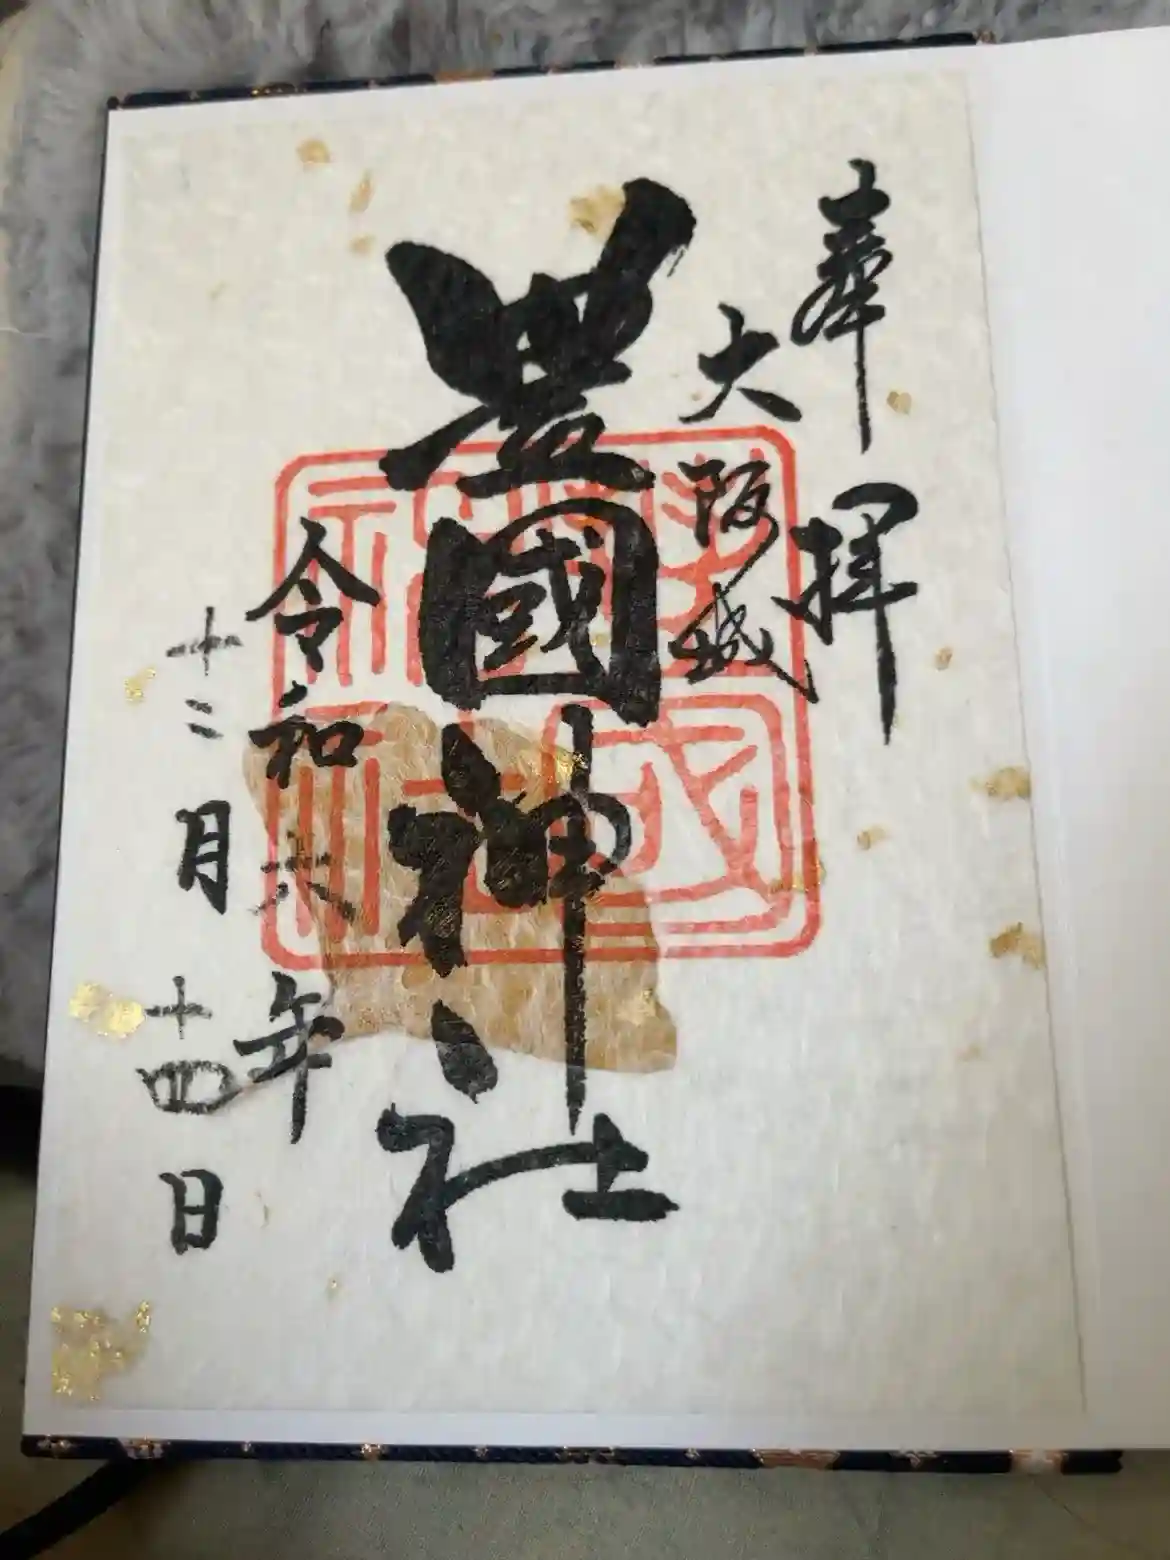 奉拝
大阪城
豊國神社
令和六年
十二月十四日